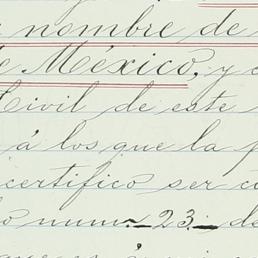 nombre de
de México, y
Civil de este
á los que la
certifico ser
num. 23 de